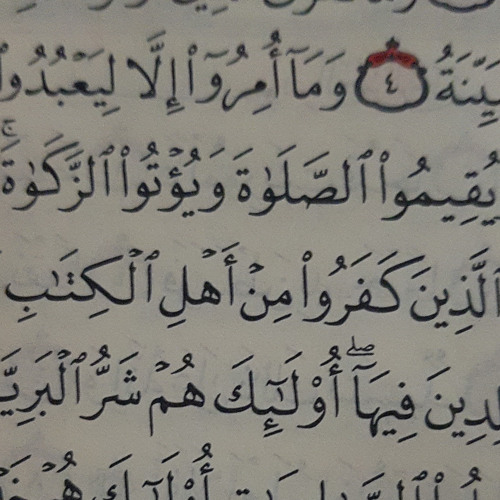 يِّنَةُ ٤ وَمَآ أُمِرُوٓا۟ إِلَّا لِيَعْبُدُوا۟
يُقِيمُوا۟ ٱلصَّلَوٰةَ وَيُؤْتُوا۟ ٱلزَّكَوٰةَ ۚ
ٱلَّذِينَ كَفَرُوا۟ مِنْ أَهْلِ ٱلْكِتَٰبِ
لِدِينَ فِيهَآ ۖ أُو۟لَٰٓئِكَ هُمْ شَرُّ ٱلْبَرِيَّ